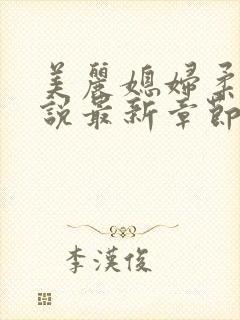 美麗媳婦柔
說最新章節
李漢俊